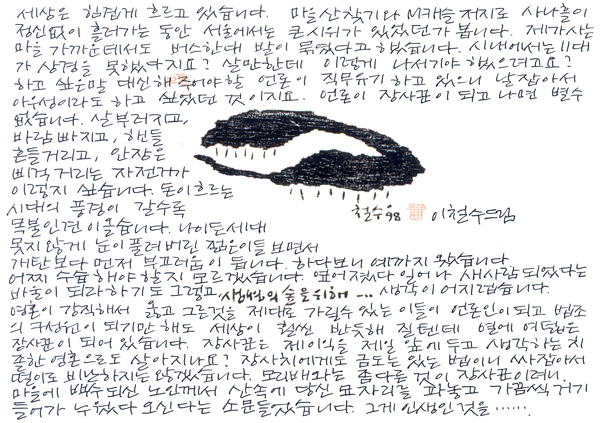 세상은 험전게 흐르고 있습니다. 마을 산책기와 M캐슬 저지로 사나흘이
정신없이 흘러가는 동안 서울에서는 큰시위가 있었던가 봅니다. 제가사는
마을 가까운데서도 버스한대 발이 묶였다고 했습니다. 시내에서는 11대
가 상경을 못했다지요? 살만한데 이렇게 나서기야 했으려고요?
하고 싶은말 대신해 주어야할 언론이 직무유기 하고 있으니 날잡아서
아우성이라도 하고 싶었던 것이지요. 언론이 장사꾼이 되고나면 별수
없습니다. 살 부러지고,
바람 빠지고, 핸들
흔들거리고, 안장은
삐걱거리는 자전거가
이렇지 싶습니다. 돈이 흐르는
시대의 풍경이 갈수록
목불인견 이올습니다. 나이든세대
못지않게 눈이 풀려버린 젊은이들 보면서
개탄보다 먼저 부끄러움이 듭니다. 하다보니 예까지 왔습니다
어찌 수습해야할지 모르겠습니다. 엎어졌다 일어나 새사람 되었다는
바울이 되라하기도 그렇고 생명의 숲을 위해 ... 생각이 어지럽습니다.
영혼이 강직해서 옳고 그른것을 제대로 가릴수 있는 이들이 언론인이 되고 법조
의 구성원이 되기만 해도 세상이 훨씬 반듯해 질텐데 열에 여덟은
장사꾼이 되어 있습니다. 장사꾼은 제이익을 제일 앞에두고 생각하는 치
졸한 영혼으로도 살아지나요? 장사치에게도 금도는 있는 법이니 싸잡아서
떨이로 비난하지는 않겠습니다. 모리배와는 좀다른 것이 장사꾼이려니.
마을에 백수 되신 노인께서 산속에 당신 묘자리를 파놓고 가끔씩 거기
들어가 누웠다 오신다는 소문들었습니다. 그게 인생인 것을 ......
철수 '98
이철수드림